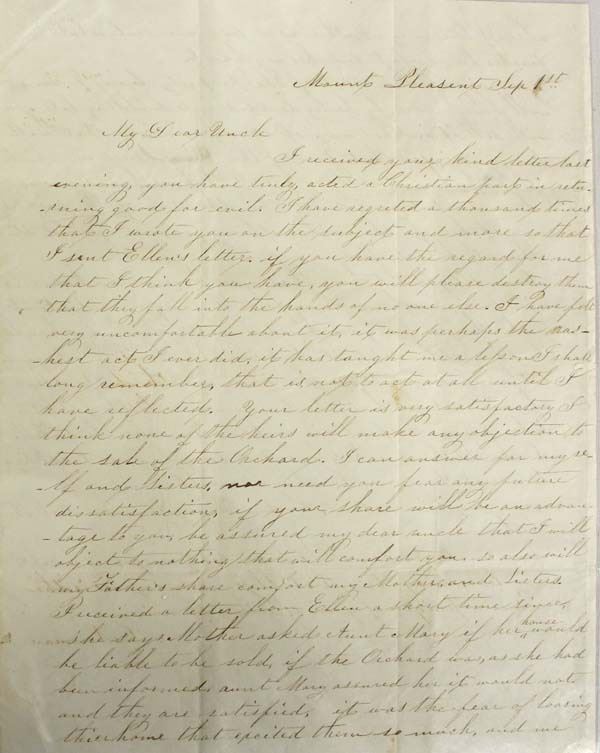 Mount Pleasent Sep 1st
My Dear Uncle
I received your kind letter last
evening, you have truly, acted a Christian part in retu-
-rning good for evil. I have regreted a thousand times
that I wrote you on the subject and more so that
I sent Ellen's letter. if you have the regard for me
that I think you have, you will please destroy them
that they fall into the hands of no one else. I have felt
very uncomfortable about it, it was perhaps the ras-
-hest act I ever did, it has taught me a lesson I shall
long remember, that is not to act at all until I
have reflected. Your letter is very satisfactory I
think none of the heirs will make any objection to
the sale of the Orchard. I can answer for myse-
-lf and Sisters, nor need you fear any future
dissatisfaction, if your share will be an advan-
-tage to you, be assured my dear uncle that I will
object to nothing that will comfort you. so also will
my Father's share comfort my Mother, and Sisters.
I received a letter from Ellen a short time since,
she says Mother asked Aunt Mary if her house would
be liable to be sold, if the Orchard was, as she had
been informed, aunt Mary assured her it would not
and they are satisfied, it was the fear of loosing
thier home that excited them so much, and me